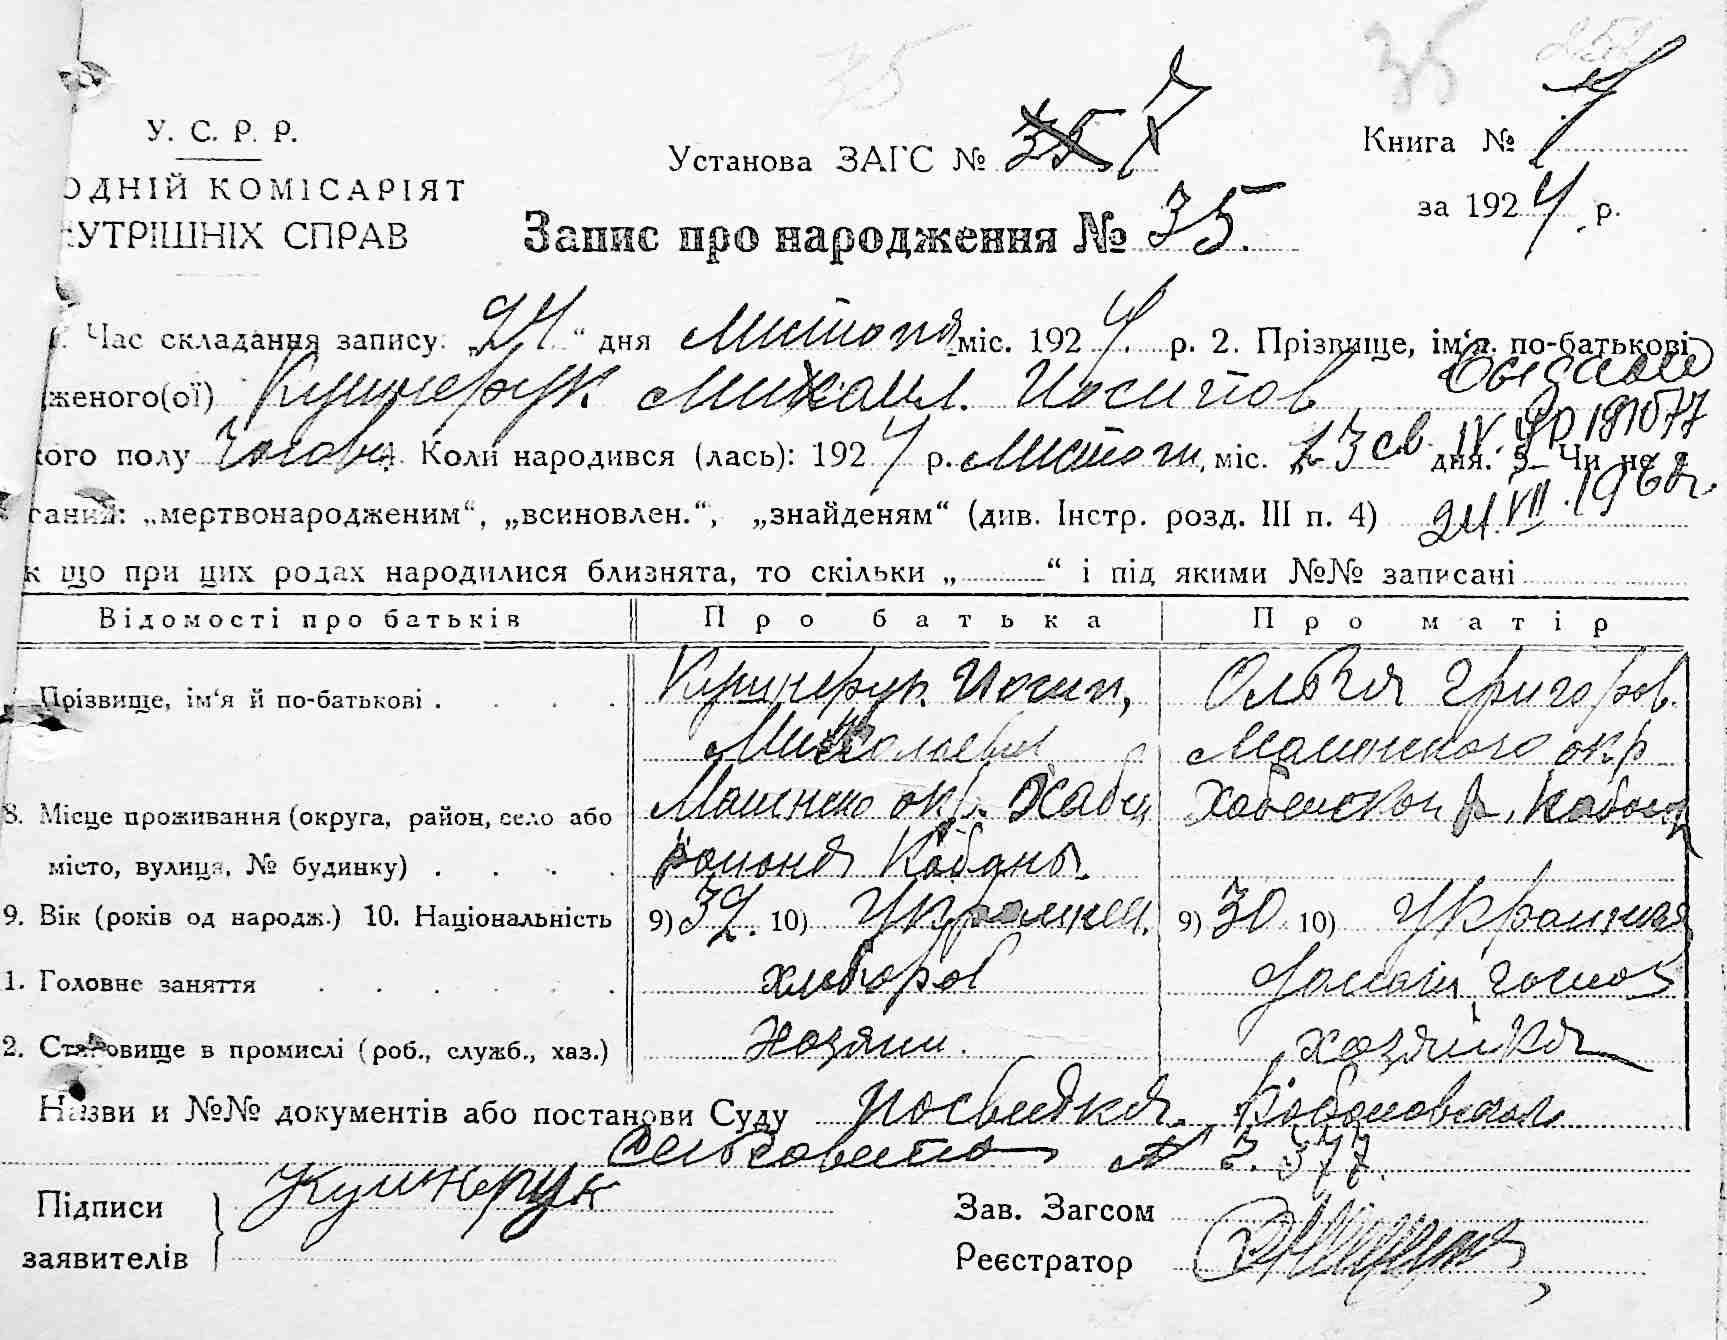 35
35
252
У. С. Р. Р.
ОДНІЙ КОМІСАРІЯТ
УТРІШНІХ СПРАВ
Установа ЗАГС № 35 7
Книга № 7
за 1924 р.
Запис про народження № 35.
Час складання запису: „24“ дня Листопа міс. 1924 р. 2. Прізвище, ім'я, по-батькові
женого(ої) Кушнерук Михаил. Иосипов
кого полу Чолов. Коли народився (лась): 1924 р. Листоп, міс. 23 дня. 5 Чи не є
IV. 191077
24. VII. 1960г.
сания: „мертвонародженим“, „всиновлен.“, „знайденям“ (див. Інстр. розд. III п. 4)
к що при цих родах народилися близнята, то скільки „ “ і під якими №№ записані
Відомості про батьків Про батька Про матір
Прізвище, ім'я й по-батькові . Кушнерук Иосип, Ольга Григоров.
Миколаев
8. Місце проживання (округа, район, село або Малинско окр. Хабн Малинского окр
місто, вулиця, № будинку) . района Кабаны. Хабенског р. Кабаны
9. Вік (років од народж.) 10. Національність 9) 32. 10) Украинец. 9) 30. 10) Украинка
1. Головне заняття хлібороб домаш, господ
2. Становище в промислі (роб., служб., хаз.) Хозяин. хозяйка
Назви и №№ документів або постанови Суду посвидка Кабановская
сельсовета № 3. 377.
Підписи Кушнерук
заявителів
Зав. Загсом
Реєстратор